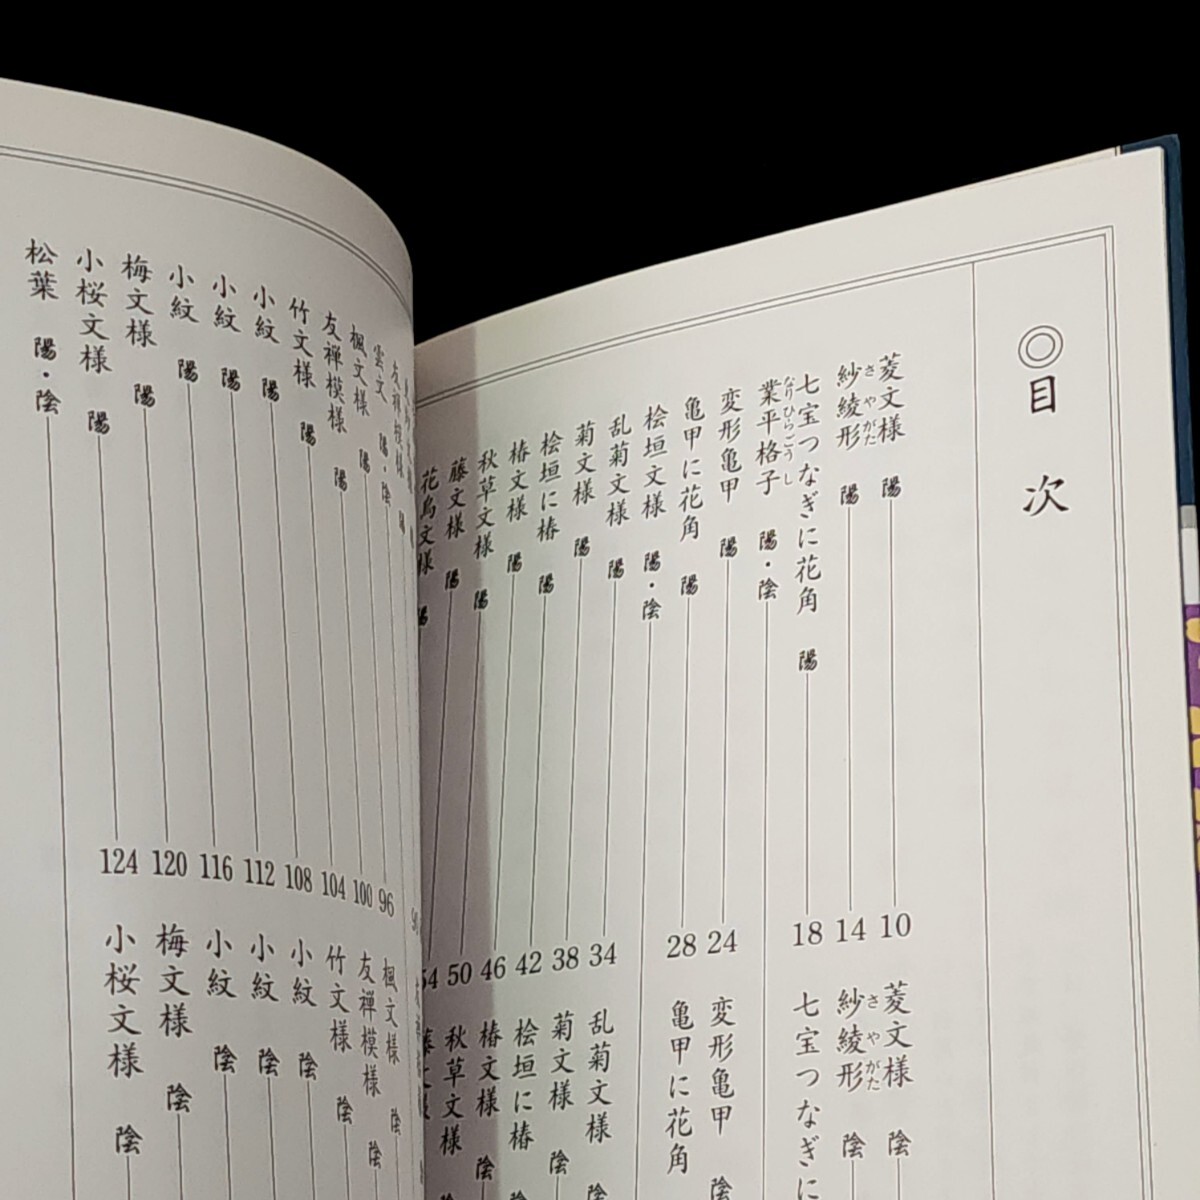 ◎目次
菱文様 陽 10
紗綾形 陽 14
さやがた
七宝つなぎに花角 陽 18
業平格子 陽・陰
なりひらごうし
変形亀甲 陽 24
亀甲に花角 陽 28
桧垣文様 陽・陰
乱菊文様 陽 34
菊文様 陽 38
桧垣に椿 陽 42
椿文様 陽 46
秋草文様 陽 50
藤文様 陽 54
花鳥文様 陽
菱文様 陰
紗綾形 陰
さやがた
七宝つなぎに
変形亀甲 陰
亀甲に花角
乱菊文様 陰
菊文様 陰
桧垣に椿 陰
椿文様 陰
秋草文様 陰
雲文 陽・陰
楓文様 陽 96
友禅模様 陽 100
竹文様 陽 104
小紋 陽 108
小紋 陽 112
小紋 陽 116
梅文様 陽 120
小桜文様 陽 124
松葉 陽・陰
楓文様 陰
友禅模様 陰
竹文様 陰
小紋 陰
小紋 陰
小紋 陰
梅文様 陰
小桜文様 陰